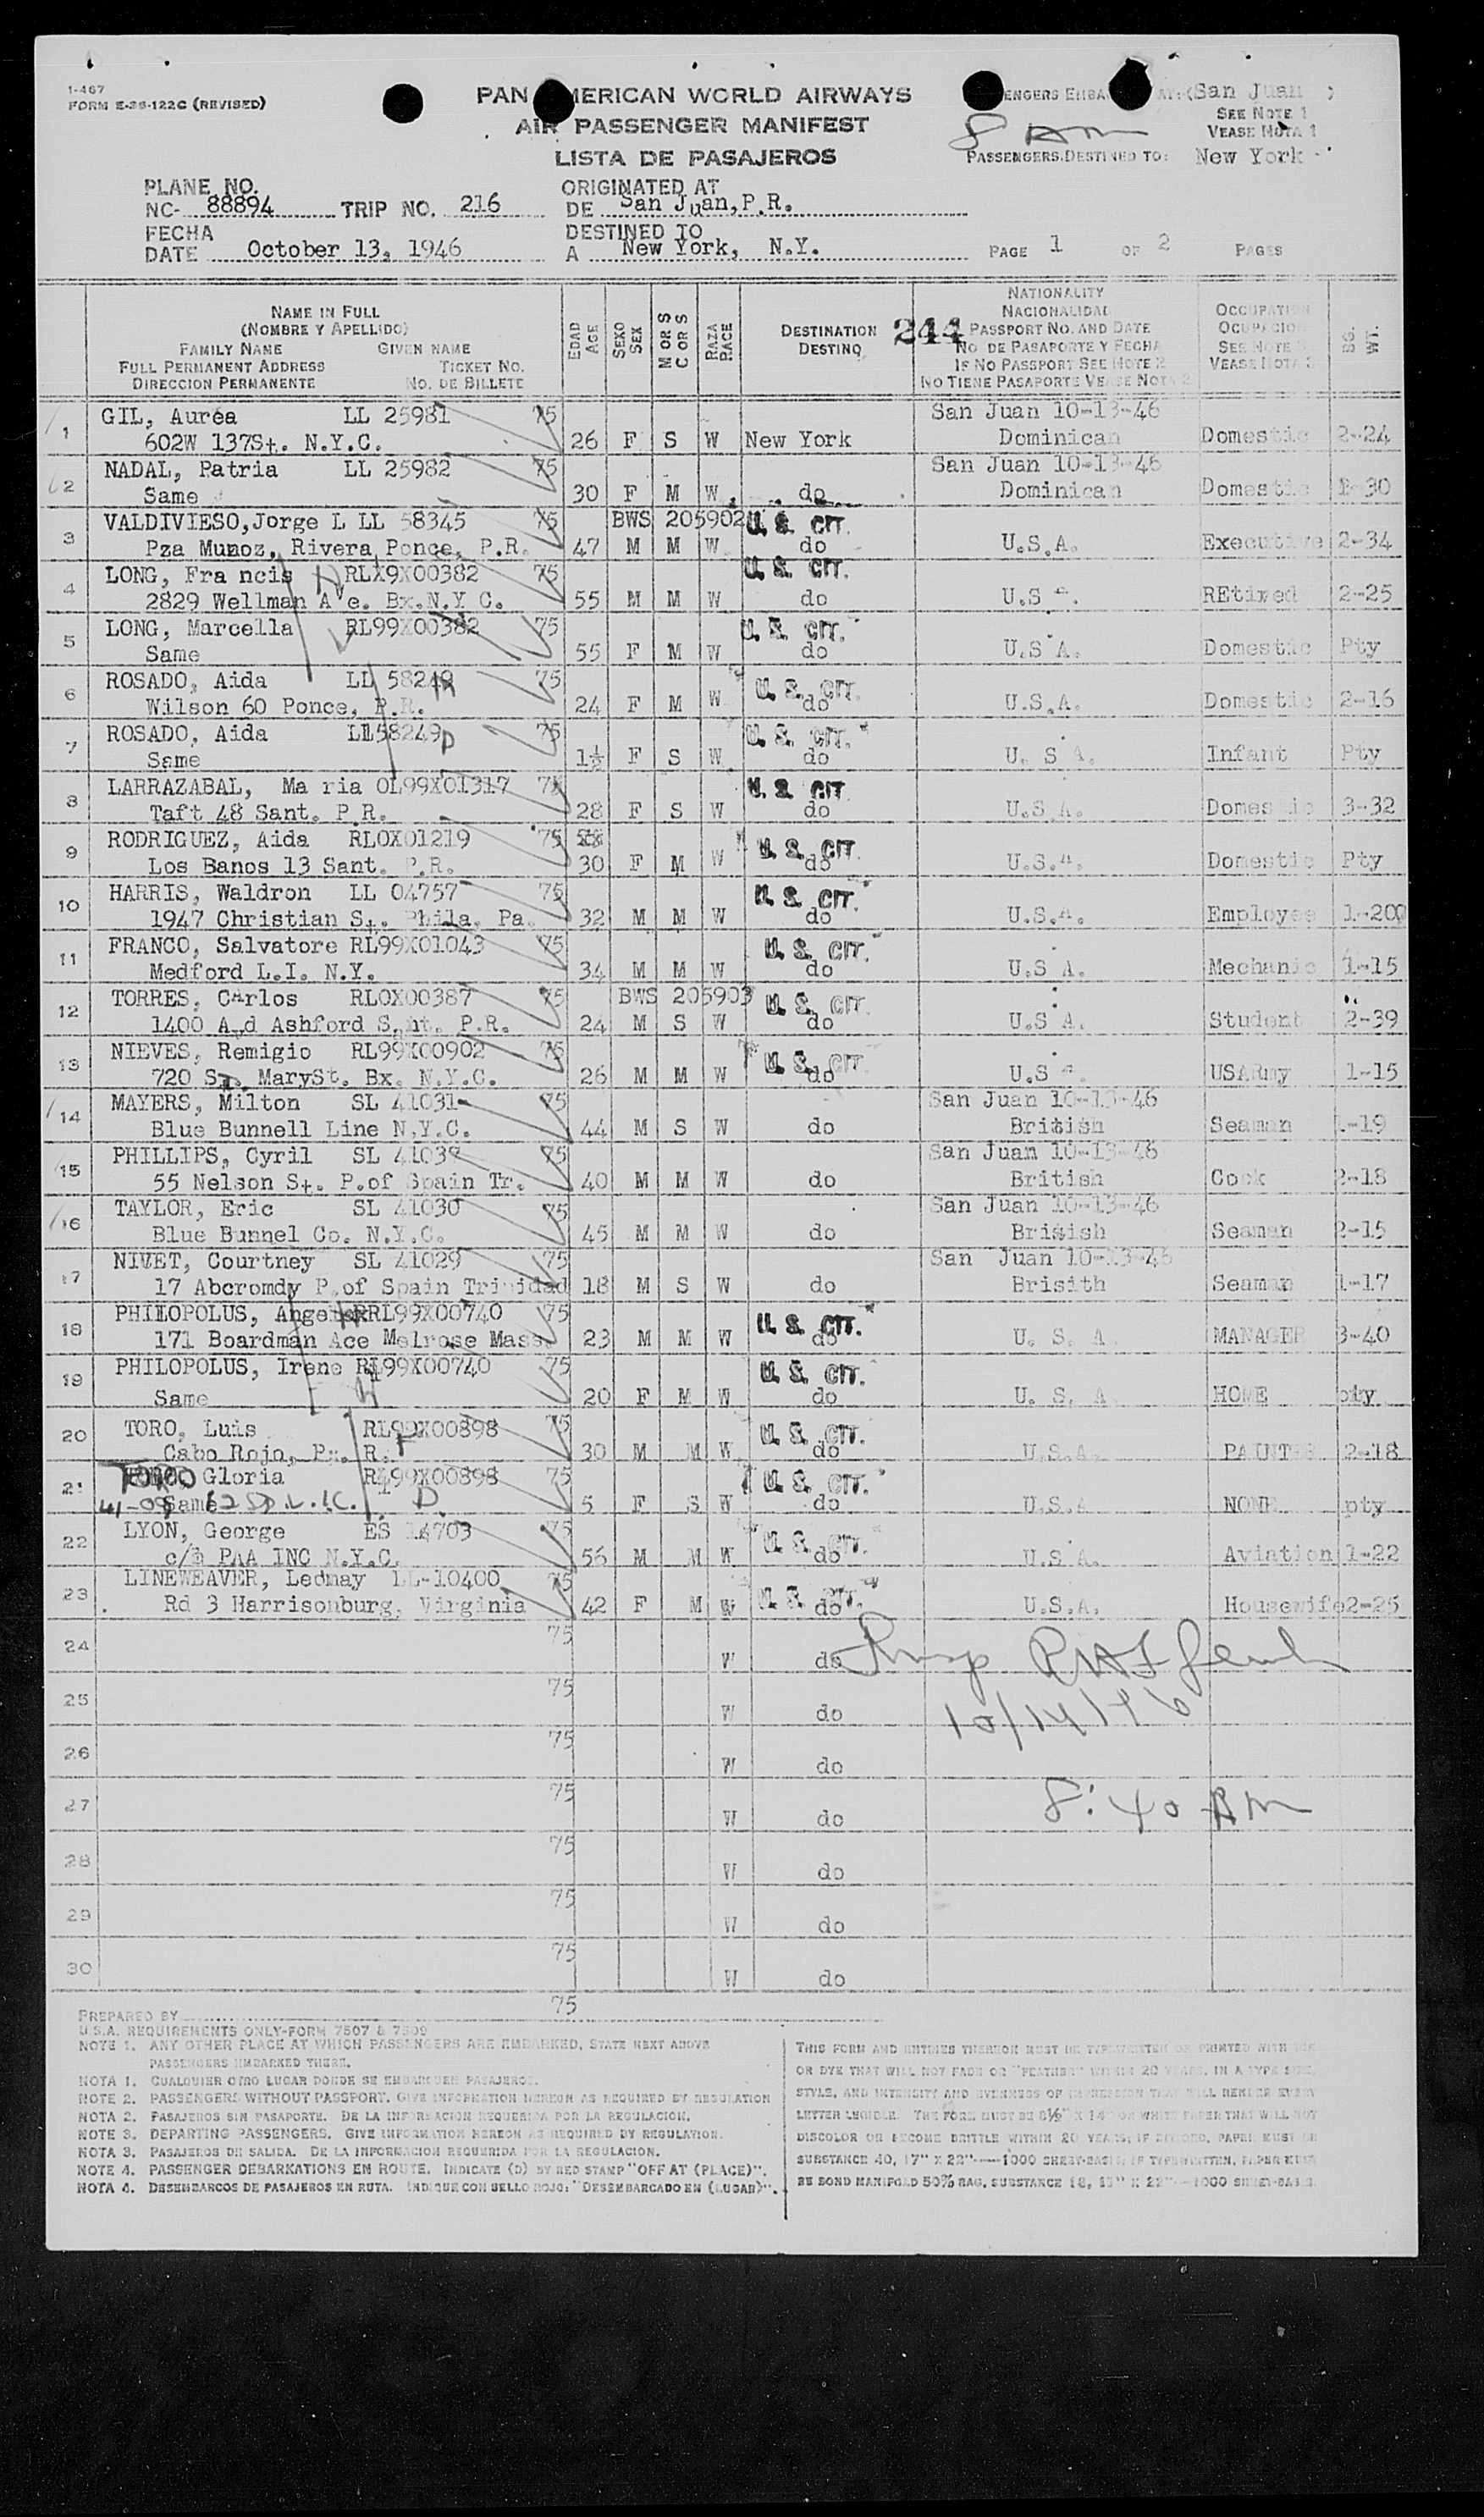 1-467
FORM E-36-122C (REVISED)
PAN AMERICAN WORLD AIRWAYS
AIR PASSENGER MANIFEST
LISTA DE PASAJEROS
San Juan
SEE NOTE 1
VEASE NOTA 1
8 AM
PASSENGERS DESTINED TO: New York
PLANE NO.
NC- 88894 TRIP NO. 216
ORIGINATED AT
DE San Juan, P.R.
FECHA
DATE October 13, 1946
DESTINED TO
A New York, N.Y.
PAGE 1 OF 2 PAGES
NAME IN FULL
(NOMBRE Y APELLIDO)
FAMILY NAME GIVEN NAME
FULL PERMANENT ADDRESS TICKET NO.
DIRECCION PERMANENTE NO. DE BILLETE
EDAD AGE
SEXO SEX
M OR S C OR S
RAZA RACE
DESTINATION
DESTINO
244
NATIONALITY
NACIONALIDAD
PASSPORT NO. AND DATE
NO. DE PASAPORTE Y FECHA
IF NO PASSPORT SEE NOTE 2
NO TIENE PASAPORTE VEASE NOTA 2
OCCUPATION
OCUPACION
SEE NOTE
VEASE NOTA
BG. WT.
1 GIL, Aurea LL 25981 75 San Juan 10-13-46
602W 137St. N.Y.C. 26 F S W New York Dominican Domestic 2-24
2 NADAL, Patria LL 25982 75 San Juan 10-13-46
Same 30 F M W do Dominican Domestic 1-30
3 VALDIVIESO, Jorge L LL 58345 75 BWS 205902 U. S. CIT.
Pza Munoz, Rivera Ponce, P.R. 47 M M W do U.S.A. Executive 2-34
4 LONG, Fra ncis RLX9X00382 75 U. S. CIT.
2829 Wellman Ave. Bx.N.Y C. 55 M M W do U.S A. REtired 2-25
5 LONG, Marcella RL99X00382 75 U. S. CIT.
Same 55 F M W do U.S A. Domestic Pty
6 ROSADO, Aida LL 58249 75 U. S. CIT.
Wilson 60 Ponce, P.R. 24 F M W do U.S.A. Domestic 2-16
7 ROSADO, Aida LL58249 75 U. S. CIT.
Same 1½ F S W do U. S A. Infant Pty
8 LARRAZABAL, Ma ria OL99X01317 75 U. S. CIT.
Taft 48 Sant. P.R. 28 F S W do U.S.A. Domestic 3-32
9 RODRIGUEZ, Aida RLOX01219 75 U. S. CIT.
Los Banos 13 Sant. P.R. 30 F M W do U.S.A. Domestic Pty
10 HARRIS, Waldron LL 04757 75 U. S. CIT.
1947 Christian St. Phila. Pa. 32 M M W do U.S.A. Employee 1-200
11 FRANCO, Salvatore RL99X01043 75 U. S. CIT.
Medford L.I. N.Y. 34 M M W do U.S A. Mechanic 1-15
12 TORRES, Carlos RLOX00387 75 BWS 205903 U. S. CIT.
1400 Avd Ashford Sant. P.R. 24 M S W do U.S A. Student 2-39
13 NIEVES, Remigio RL99X00902 75 U. S. CIT.
720 St. MarySt. Bx. N.Y.C. 26 M M W do U.S A. USARmy 1-15
14 MAYERS, Milton SL 41031 75 San Juan 10-13-46
Blue Bunnell Line N.Y.C. 44 M S W do British Seaman 1-19
15 PHILLIPS, Cyril SL 75 San Juan 10-13-46
55 Nelson St. P.of Spain Tr. 40 M M W do British Cook 2-18
16 TAYLOR, Eric SL 41030 75 San Juan 10-13-46
Blue Bunnel Co. N.Y.C. 45 M M W do Brisish Seaman 2-15
17 NIVET, Courtney SL 41029 75 San Juan 10-13-46
17 Abcromdy P.of Spain Trinidad 18 M S W do Brisith Seaman 1-17
18 PHILOPOLUS, RL99X00740 75 U. S. CIT.
171 Boardman Ace Melrose Mass. 23 M M W do U. S. A MANAGER 3-40
19 PHILOPOLUS, Irene RL99X00740 75 U. S. CIT.
Same 20 F M W do U. S. A HOME pty
20 TORO, Luis RL99X00898 75 U. S. CIT.
Cabo Rojo, P. R. 30 M M W do U.S.A. PAINTER 2-18
21 TORO Gloria RL99X00898 75 U. S. CIT.
41-09 Same L.I.C. 5 F S W do U.S.A NONE pty
22 LYON, George ES 14703 75 U. S. CIT.
c/o PAA INC N.Y.C. 56 M M W do U.S.A. Aviation 1-22
23 LINEWEAVER, Ledmay LL-10400 75 U. S. CIT.
Rd 3 Harrisonburg, Virginia 42 F M W do U.S.A. Housewife 2-25
24 75 W do
25 75 W do 10/14/46
26 75 W do
27 75 W do 8:40 AM
28 75 W do
29 75 W do
30 75 W do
75
PREPARED BY
U.S.A. REQUIREMENTS ONLY-FORM 7507 & 7509
NOTE 1. ANY OTHER PLACE AT WHICH PASSENGERS ARE EMBARKED, STATE NEXT ABOVE
PASSENGERS EMBARKED THERE.
NOTA 1. CUALQUIER OTRO LUGAR DONDE SE EMBARQUEN PASAJEROS.
NOTE 2. PASSENGERS WITHOUT PASSPORT. GIVE INFORMATION HEREON AS REQUIRED BY REGULATION
NOTA 2. PASAJEROS SIN PASAPORTE. DE LA INFORMACION REQUERIDA POR LA REGULACION.
NOTE 3. DEPARTING PASSENGERS. GIVE INFORMATION HEREON AS REQUIRED BY REGULATION.
NOTA 3. PASAJEROS DE SALIDA. DE LA INFORMACION REQUERIDA POR LA REGULACION.
NOTE 4. PASSENGER DEBARKATIONS EN ROUTE. INDICATE (D) BY RED STAMP "OFF AT (PLACE)".
NOTA 4. DESEMBARCOS DE PASAJEROS EN RUTA. INDIQUE CON SELLO ROJO: "DESEMBARCADO EN (LUGAR)".
THIS FORM AND ENTRIES THEREON MUST BE TYPEWRITTEN OR PRINTED WITH INK
OR DYE THAT WILL NOT FADE OR "FEATHER" WITHIN 20 YEARS, IN A TYPE SIZE,
STYLE, AND INTENSITY AND EVENNESS OF IMPRESSION THAT WILL RENDER EVERY
LETTER LEGIBLE. THE FORM MUST BE 8½" X 14" ON WHITE PAPER THAT WILL NOT
DISCOLOR OR BECOME BRITTLE WITHIN 20 YEARS; IF PAPER MUST BE
SUBSTANCE 40, 17" X 22"—1000 SHEET-BASIS; IF TYPEWRITTEN, PAPER MUST
BE BOND MANIFOLD 50% RAG, SUBSTANCE 18, 17" X 22"—1000 SHEET-BASIS.